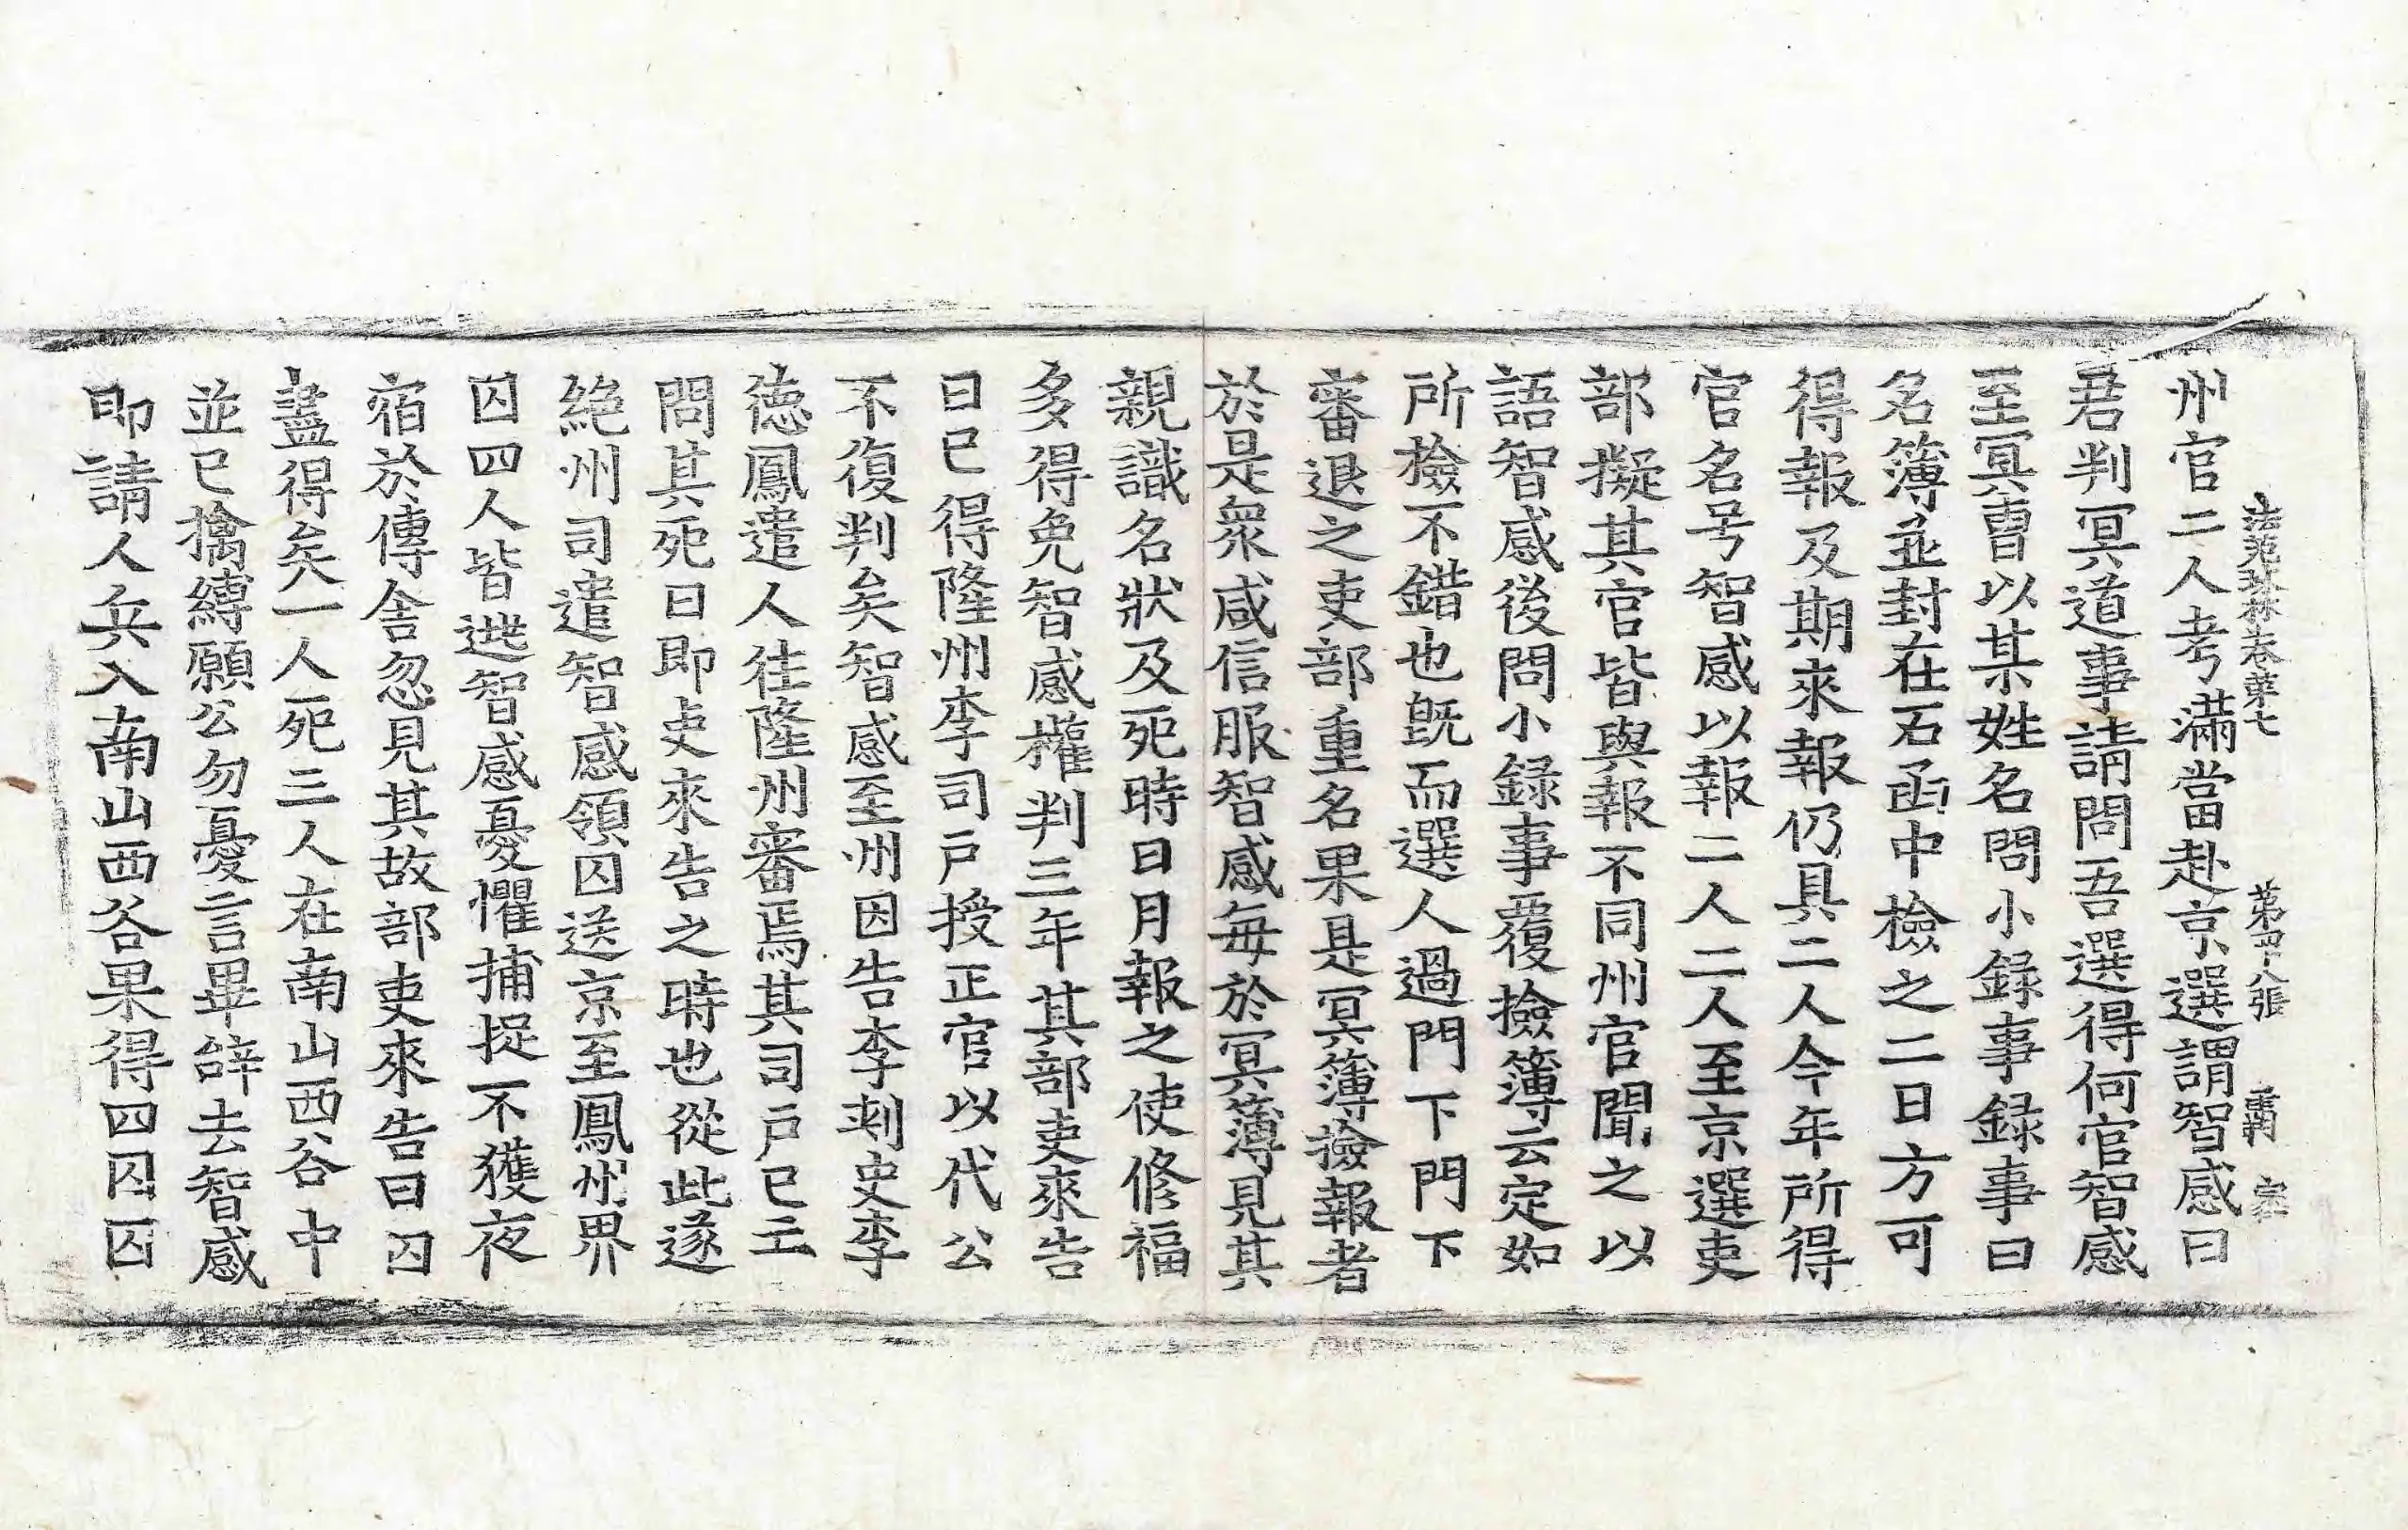 法苑珠林卷第七 第四十八張 書 家
州官二人考滿當赴京選謂智感曰
君判冥道事請問吾選得何官智感
至冥曹以某姓名問小錄事錄事曰
名簿並封在石函中檢之二日方可
得報及期來報仍具二人今年所得
官名号智感以報二人二人至京選吏
部擬其官皆與報不同州官聞之以
語智感後問小錄事覆撿簿云定如
所撿不錯也旣而選人過門下門下
審退之吏部重名果是冥簿撿報者
於是衆咸信服智感每於冥簿見其
親識名狀及死時日月報之使修福
多得免智感權判三年其部吏來告
曰已得隆州李司户授正官以代公
不復判矣智感至州因告李刺史李
德鳳遣人往隆州審焉其司户已亡
問其死日即吏來告之時也從此遂
絕州司遣智感領囚送京至鳳州界
囚四人皆逃智感憂懼捕捉不獲夜
宿於傳舍忽見其故部吏來告曰囚
盡得矣一人死三人在南山西谷中
並已擒縛願公勿憂言畢辝去智感
即請人兵入南山西谷果得四囚囚